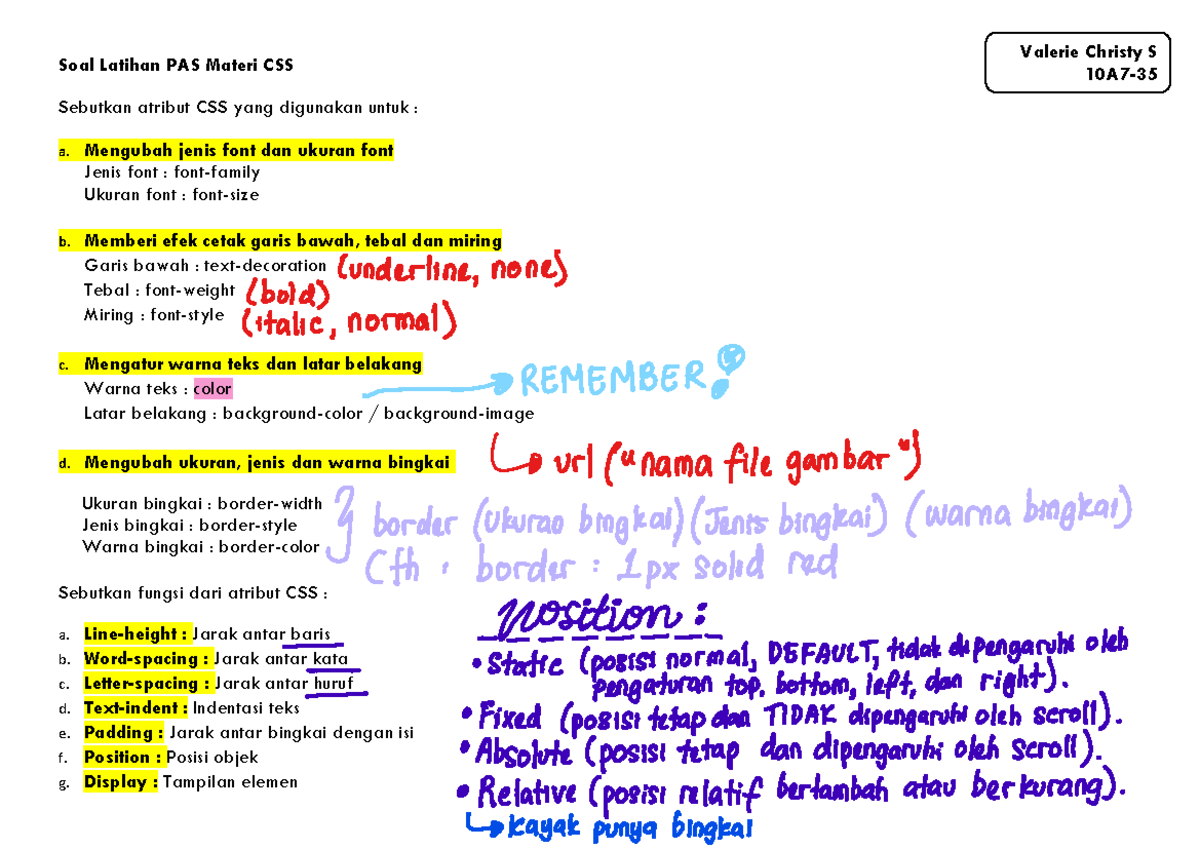 Valerie Christy S
10A7-35
Soal Latihan PAS Materi CSS
Sebutkan atribut CSS yang digunakan untuk :
a. Mengubah jenis font dan ukuran font
Jenis font : font-family
Ukuran font : font-size
b. Memberi efek cetak garis bawah, tebal dan miring
Garis bawah : text-decoration (underline, none)
Tebal : font-weight (bold)
Miring : font-style (italic, normal)
c. Mengatur warna teks dan latar belakang
Warna teks : color → REMEMBER!
Latar belakang : background-color / background-image
↳ url ("nama file gambar")
d. Mengubah ukuran, jenis dan warna bingkai
Ukuran bingkai : border-width
Jenis bingkai : border-style
Warna bingkai : border-color
border (Ukuran bingkai) (Jenis bingkai) (warna bingkai)
Cth : border : 1px solid red
Sebutkan fungsi dari atribut CSS :
a. Line-height : Jarak antar baris
b. Word-spacing : Jarak antar kata
c. Letter-spacing : Jarak antar huruf
d. Text-indent : Indentasi teks
e. Padding : Jarak antar bingkai dengan isi
f. Position : Posisi objek
g. Display : Tampilan elemen
Position :
• Static (posisi normal, DEFAULT, tidak dipengaruhi oleh
pengaturan top, bottom, left, dan right).
• Fixed (posisi tetap dan TIDAK dipengaruhi oleh scroll).
• Absolute (posisi tetap dan dipengaruhi oleh scroll).
• Relative (posisi relatif bertambah atau berkurang).
↳ kayak punya bingkai